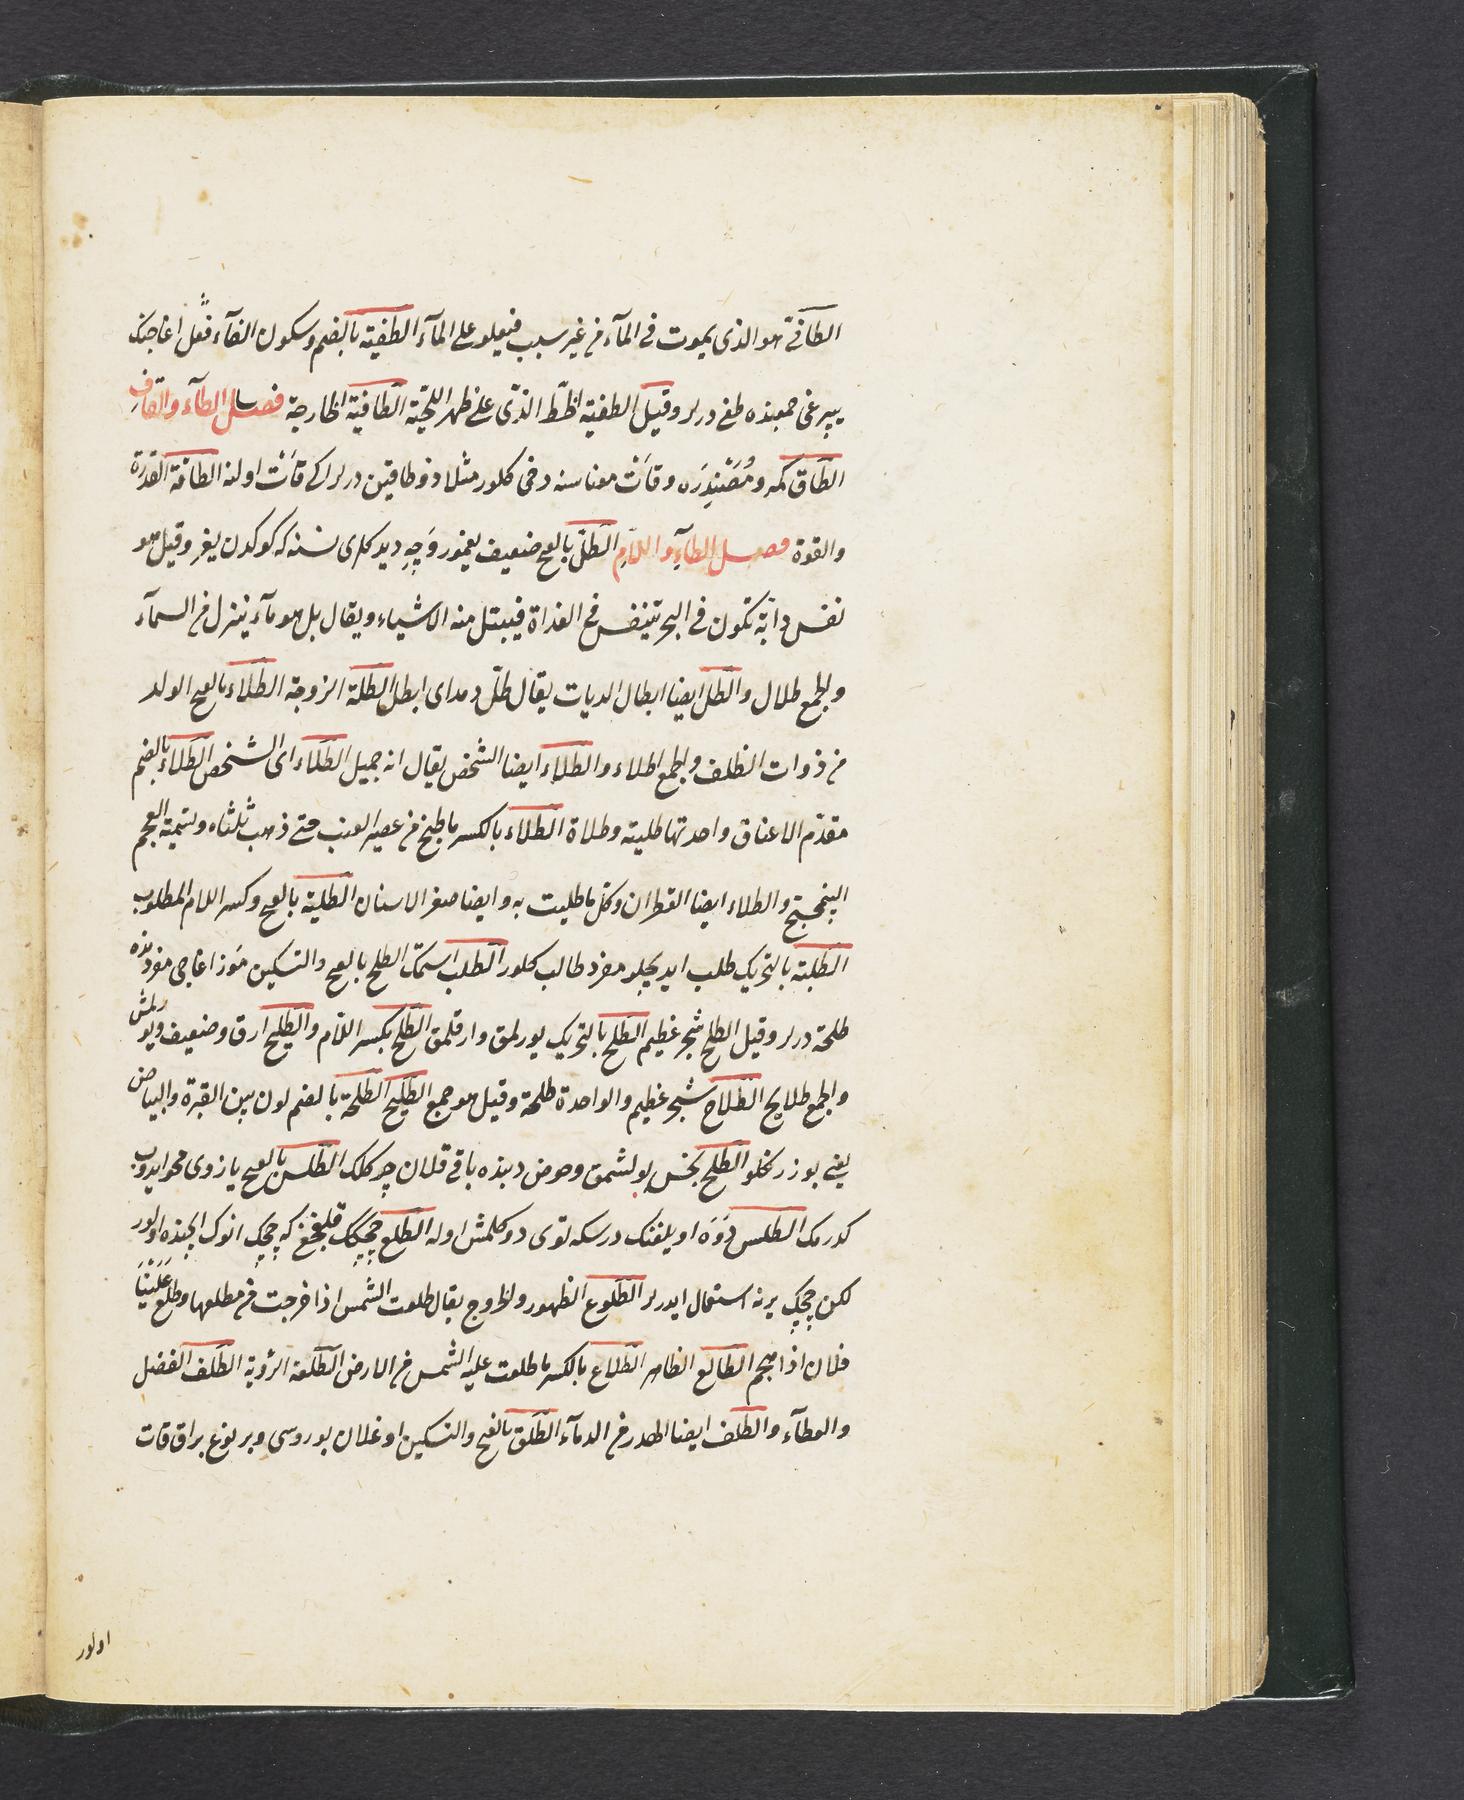 الطافى هو الذى يموت فى المآء من غير سبب فيعلو على المآء الطفية بالضم وسكون الفآء مُقل اغاجنك
يپرغى جمعنده طفى درلر وقيل الطفية الخط الذى على ظهر الحيّة الطافية الخارجة فصل الطآء والقاف
الطاق كمر ومُصَنْدِرَه وقات معناسنه دخى كلور مثلا ذو طاقين درلر ايكى قات اولنه الطاقة القدرة
والقوة فصل الطآء واللام الطلّ بالفتح ضعيف يغمور وَچه ديدكلرى نسنه كه كوكدن يغر وقيل هو
نفس دابّة تكون فى البحر تتنفس فى الغداة فيبتل منه الاشياء ويقال بل هو مآء ينزل من السمآء
والجمع طلال والطل ايضا ابطال الديات يقال طلّ دمه اى ابطل الطلة الزوجة الطلاء بالفتح الولد
من ذوات الظلف والجمع اطلاء والطلاء ايضا الشخص يقال انه جميل الطلاء اى الشخص الطلاء بالضم
مقدّم الاعناق واحدتها طلية وطلاة الطلاء بالكسر ما طبخ من عصير العنب حتى ذهب ثلثاه وتسميه العجم
الپنجتج والطلاء ايضا القطران وكل ما طليت به وايضا صفر الاسنان الطلبة بالفتح وكسر اللام المطلوب
الطلبة بالتحريك طلب ايديجلر مفرد طالب كلور الطلب اسمك الطلح بالفتح والتسكين مَوز اغاجى مفردنده
طلحة درلر وقيل الطلح شجر عظيم الطلح بالتحريك يورلمق وارقلمق الطلح بكسر اللام والطليح ارق وضعيف ويورلمش
والجمع طلايح الطلاح شجر عظيم والواحدة طلحة وقيل هو جمع الطليح الطلحة بالضم لون بين الغبرة والبياض
يعنى بوز رنكلو الطلح نجس بولشمق وحوض دبنده باقى قلان چركلك الطلس بالفتح يازوى محو ايدوب
كدرمك الطلس دَوَه اويلغنك درسكه توى دوكلمش اوله الطلع چيچك قبلغچغى كه چيچك انوك ايچنده اولور
لكن چيچك يرنه استعمال ايدرلر الطلوع الظهور والخروج يقال طلعت الشمس اذا خرجت من مطلعها وطلع عَلَيْنَا
فلان اذا هجم الطالع الظاهر الطلاع بالكسر ما طلعت عليه الشمس من الارض الطلعة الرؤية الطلف الفضل
والعطآء والطلف ايضا الهدر من الدمآء الطلق بالفتح والتسكين اوغلان بوروسى وبر نوع براق قات
اولور